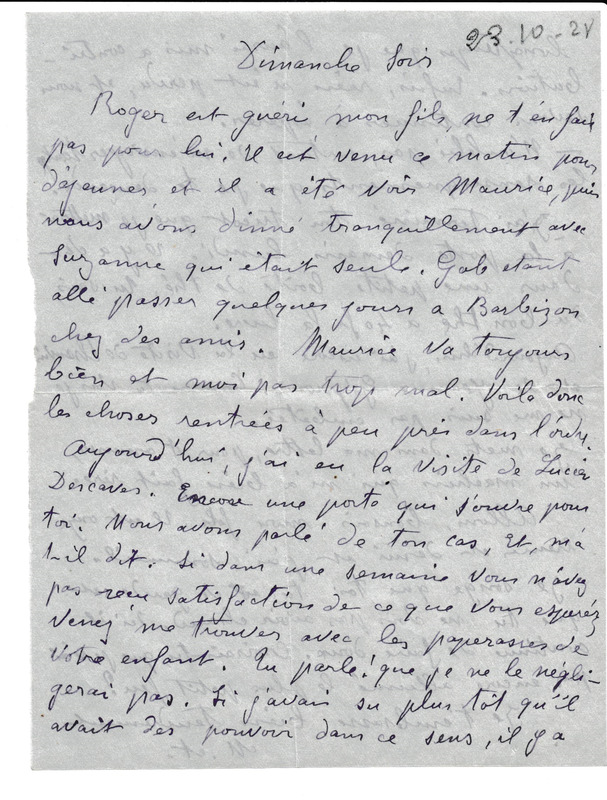 23.10-2V
Dimanche Soir
Roger est guéri mon fils, ne t'en fais
pas pour lui. Il est venu ce matin pour
déjeuner et il a été voir Maurice, puis
nous avons dinné tranquillement avec
Suzanne qui était seule. Gab etant
allé passer quelques jours a Barbizon
chez des amis. Maurice va toujours
bien et moi pas trop mal. Voila donc
les choses rentrées à peu près dans l'ordre.
Aujourd'hui, j'ai eu la visite de Lucien
Descaves. Encore une porte qui s'ouvre pour
toi. Nous avons parlé de ton cas, Et, m'a
t-il dit. Si dans une semaine vous n'avez
pas reçu satisfaction de ce que vous espérez
venez me trouver avec les paperasses de
votre enfant. Tu parle! que je ne le négli-
gerai pas. Si j'avais su plus tôt qu'il
avait des pouvoir dans ce sens, il y a